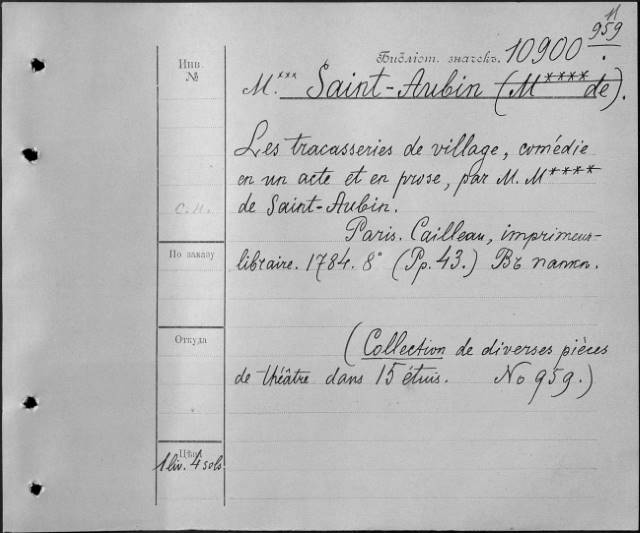 11
959
Инв.
№
Библіот. значекъ. 10900
M.*** Saint-Aubin (M**** de).
Les tracasseries de village, comédie
en un acte et en prose, par M. M****
de Saint-Aubin.
Paris. Cailleau, imprimeur-
libraire. 1784. 8° (Pp. 43.) Въ папкѣ.
По заказу
Откуда
(Collection de diverses pièces
de théâtre dans 15 étuis. No 959.)
Цѣна
1 liv. 4 sols